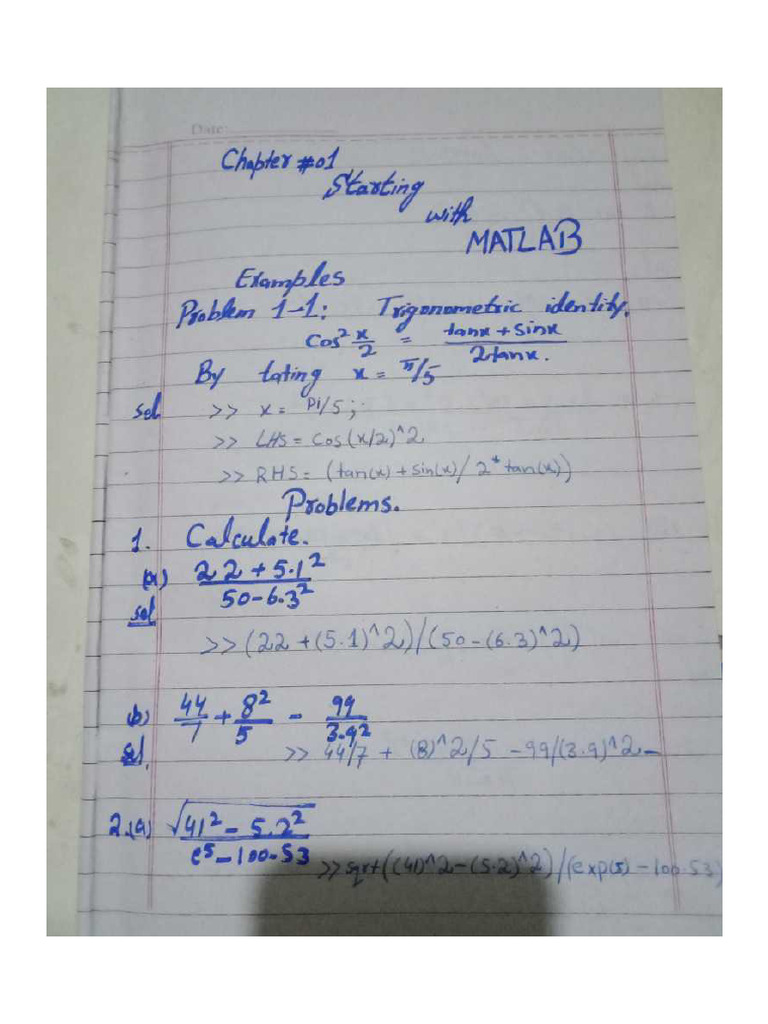 Date:
Chapter #01
Starting
with
MATLAB
Examples
Problem 1-1: Trigonometric identity.
Cos² x/2 = tanx + sinx / 2tanx.
By tating x = π/5
sol >> x = pi/5;
>> LHS = Cos(x/2)^2
>> RHS = (tan(x) + sin(x)/2*tan(x))
Problems.
1. Calculate.
(a) 22 + 5.1² / 50 - 6.3²
sol
>> (22 + (5.1)^2)/(50 - (6.3)^2)
(b) 44/7 + 8²/5 - 99/3.9²
sol. >> 44/7 + (8)^2/5 - 99/(3.9)^2
2.(a) √41² - 5.2² / e⁵ - 100.53
>> sqrt((41)^2 - (5.2)^2)/(exp(5) - 100.53)